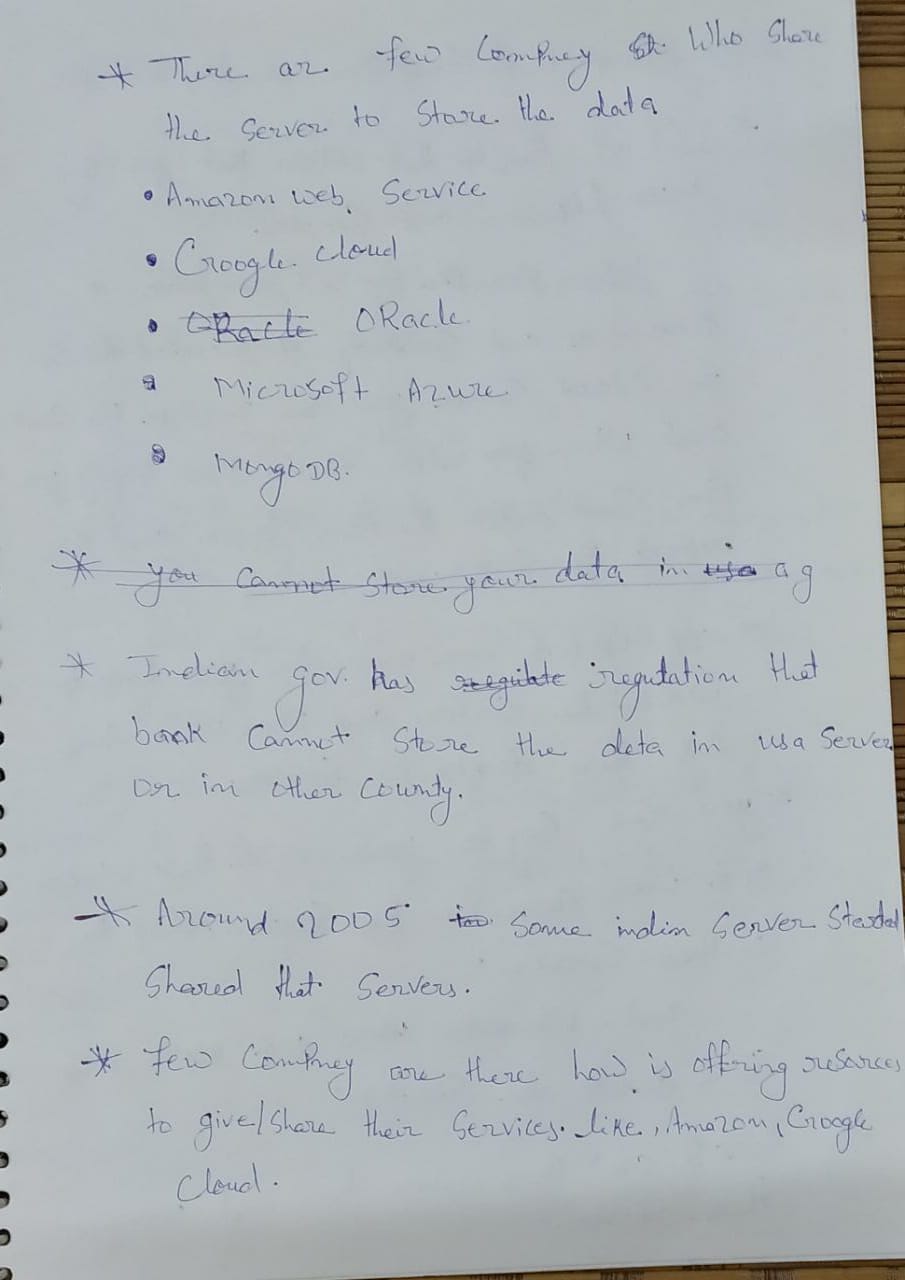 * There ar few Compney Who Share
the Server to Store the data
• Amazon web Service
• Google Cloud
• ORacle ORacle
• Microsoft Azure
• MongoDB.
* you Cannot Store your data in a g
* Indian gov. has regulate regutation that
bank Cannot Store the deta in usa Server
Or in other County.
* Around 2005 Some indin Server
Shared that Servers.
* few Compney are there how is offering
to give/Share their Services. like, Amazon, Google
Cloud.